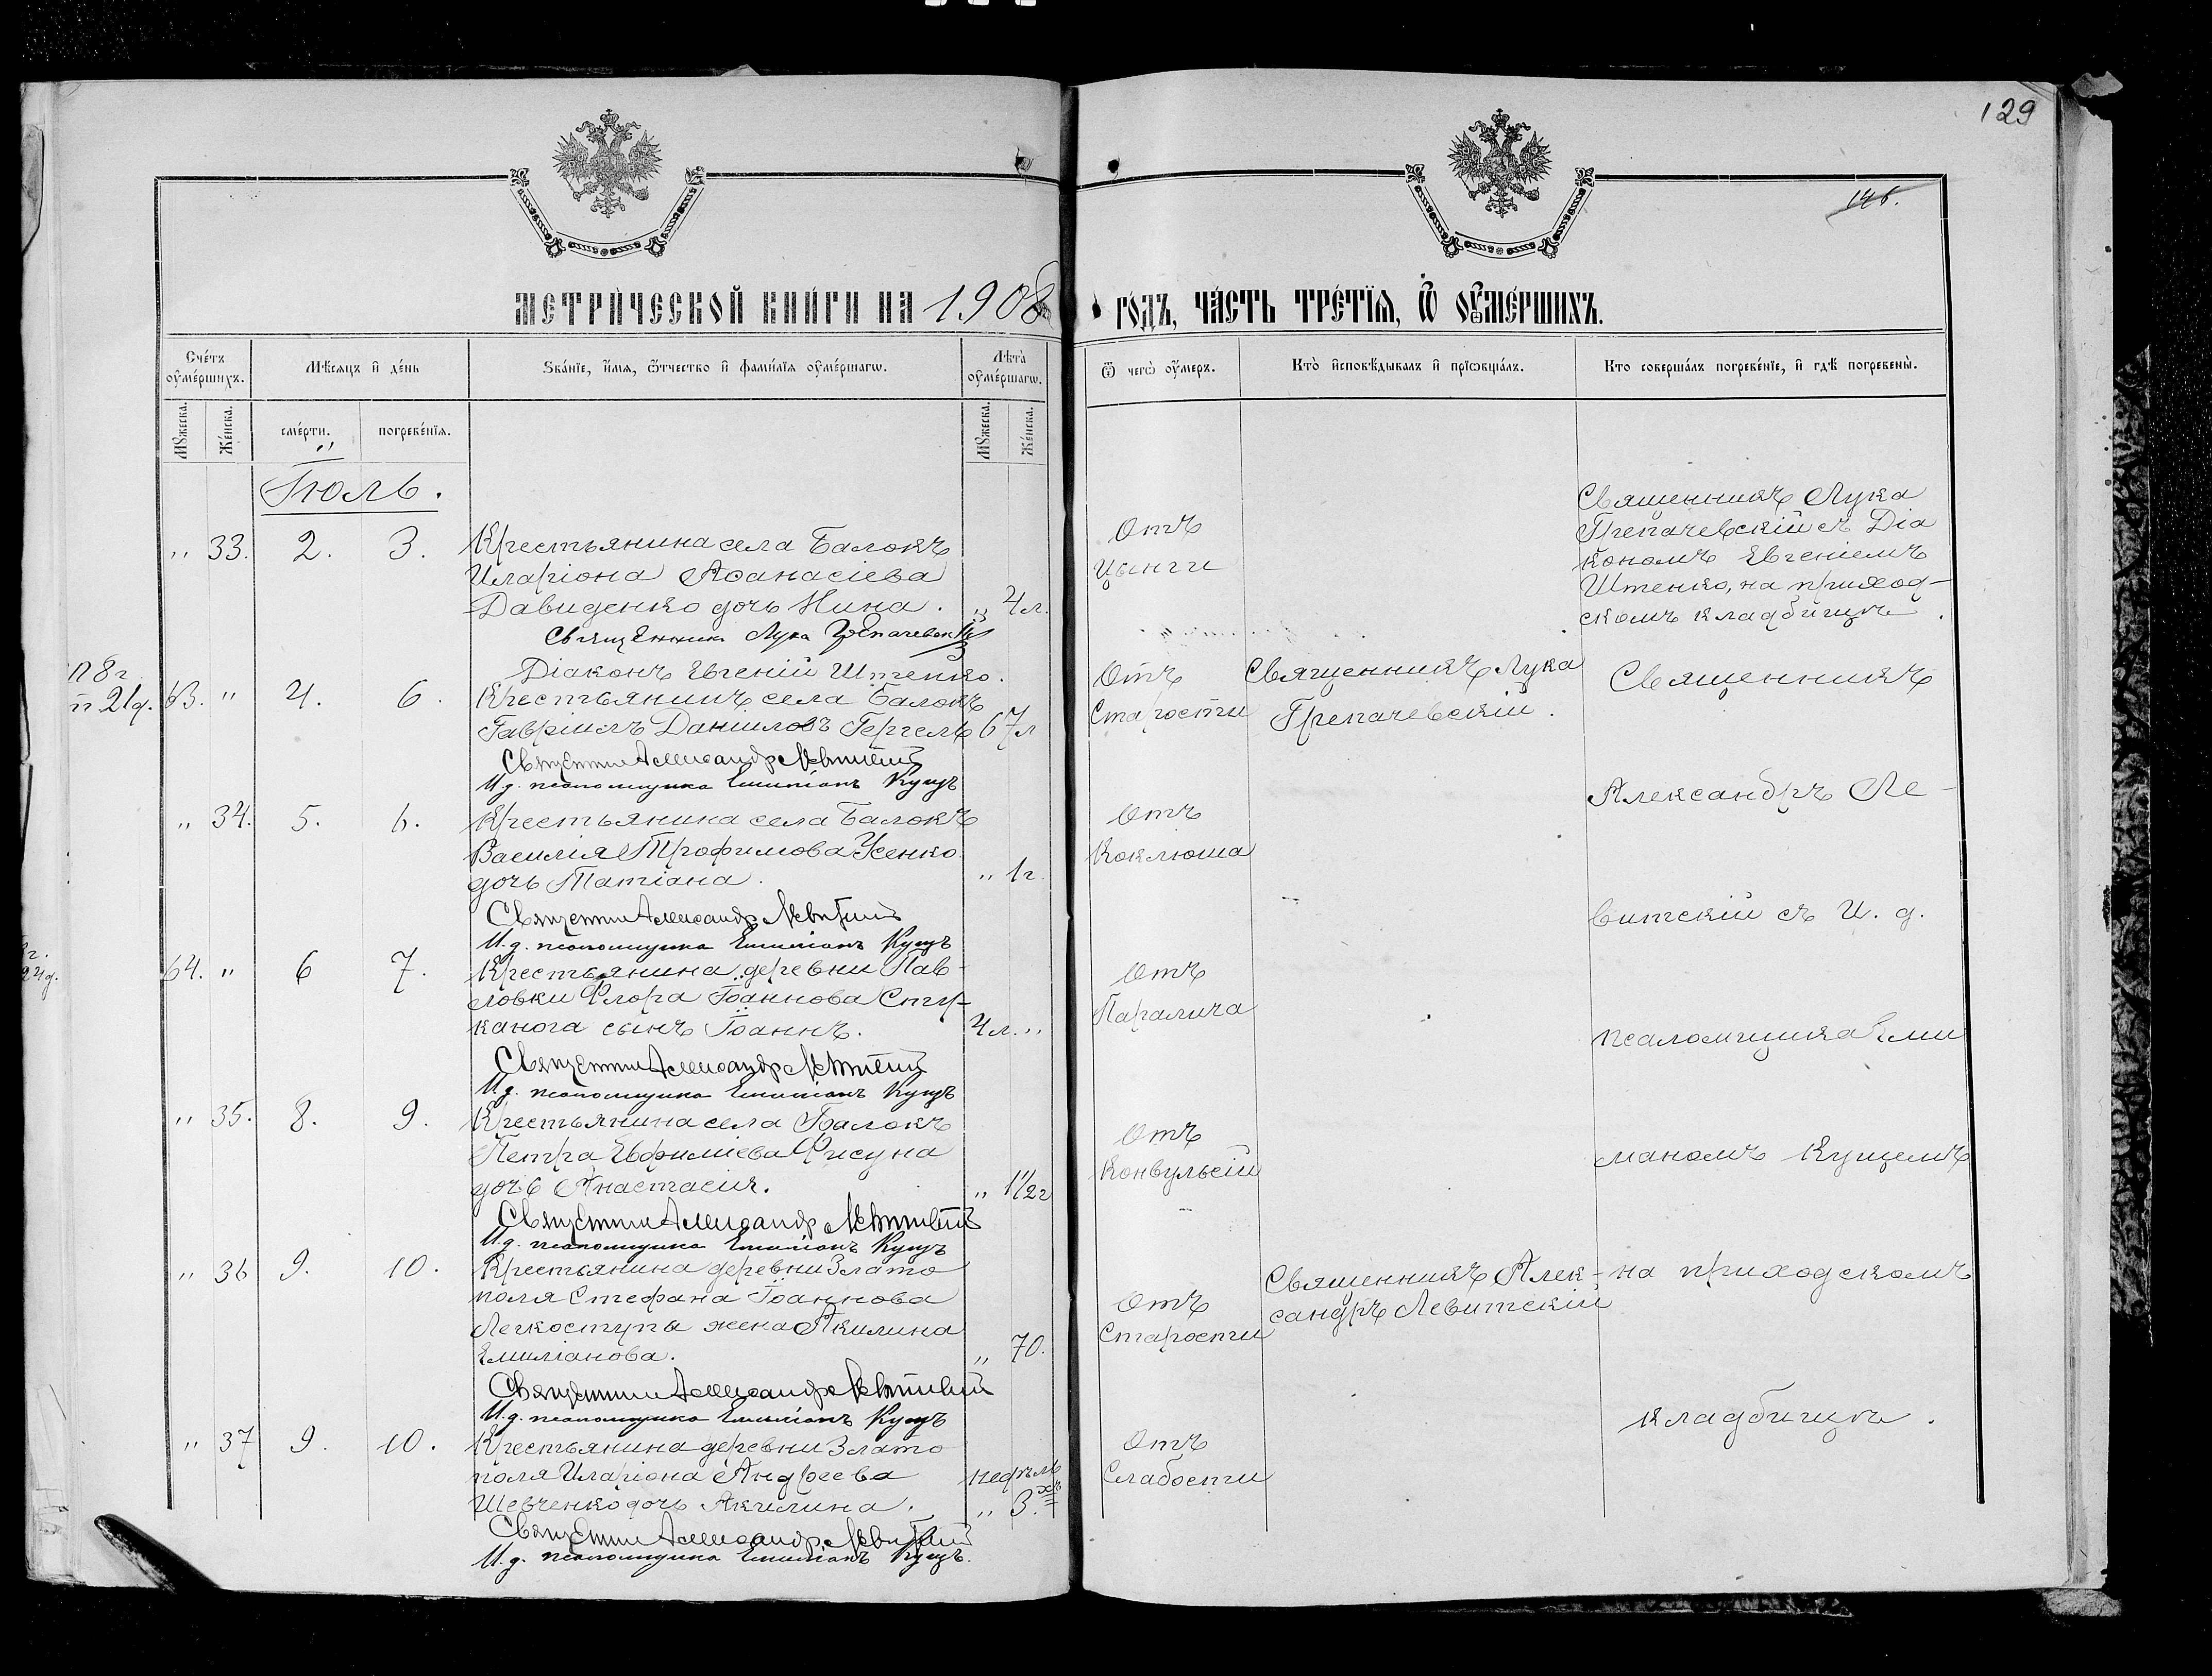 129
146.
МЕТРИ́ЧЕСКОЙ КНИ́ГИ НА 1908 ГО́ДЪ, ЧА́СТЬ ТРЕ́ТІѦ, Ѽ ОУ҆МЕ́РШИХЪ.
Сче́тъ оу҆ме́ршихъ.
Мѣ́сяцъ и҆ де́нь
Зва́нїе, и҆́мѧ, ѻ҆́тчество и҆ фами́лїѧ оу҆ме́ршагѡ.
Лѣ́та оу҆ме́ршагѡ.
Ѿ чегѡ̀ оу҆́меръ.
Кто̀ и҆сповѣ́дывалъ и҆ прїѡбща́лъ.
Кто соверша́лъ погребе́нїе, и҆ гдѣ̀ погребены̀.
Мꙋ́жеска.
Же́нска.
сме́рти.
погребе́нїѧ.
Мꙋ́жеска.
Же́нска.
Іюль.
„ 33. 2. 3. Крестьянина села Балокъ
Иларіона Аѳанасіева
Давиденко дочь Нина. „ 4 л.
Священникъ Лука
Діаконъ Евгеній Штепко.
Отъ
Цынги
Священникъ Лука
съ Діа
кономъ Евгеніемъ
Штенко, на приход-
скомъ кладбищѣ.
п 8 г.
п 21 д.
63. „ 4. 6. Крестьянинъ села Балокъ
Гавріилъ Даниловъ Гергель 67 л
Священникъ Александръ Левитскій
И. д. псаломщика Емиліанъ Кущъ
Отъ
Старости
Священникъ Лука
Священникъ
„ 34. 5. 6. Крестьянина села Балокъ
Василія Трофимова Усенко
дочь Татіана. „ 1 г.
Священникъ Александръ Левитскій
И. д. псаломщика Емиліанъ Кущъ
Отъ
Коклюша
Александръ Ле-
витскій съ И. д.
г.
24 д.
64. „ 6 7. Крестьянина деревни Пав-
ловки Флора Іоаннова Сту-
канога сынъ Іоаннъ. 4 л. „
Священникъ Александръ Левитскій
И. д. псаломщика Емиліанъ Кущъ
Отъ
Паралича
псаломщика Еми
„ 35. 8. 9. Крестьянина села Балокъ
Петра Евфиміева Фисуна
дочь Анастасія. „ 1 1/2 г
Священникъ Александръ Левитскій
И. д. псаломщика Емиліанъ Кущъ
Отъ
Конвульсій
маномъ Кущемъ
„ 36 9. 10. Крестьянина деревни Злато
поля Стефана Іоаннова
Легкоступы жена Акилина
Емиліанова. „ 70.
Священникъ Александръ Левитскій
И. д. псаломщика Емиліанъ Кущъ
Отъ
Старости
Священникъ Алек-
сандръ Левитскій
на приходскомъ
„ 37 9. 10. Крестьянина деревни Злато
поля Иларіона Андреева
Шевченко дочь Акилина. недѣль „ 3.хъ
Священникъ Александръ Левитскій
И. д. псаломщика Емиліанъ Кущъ.
Отъ
Слабости
кладбищѣ.